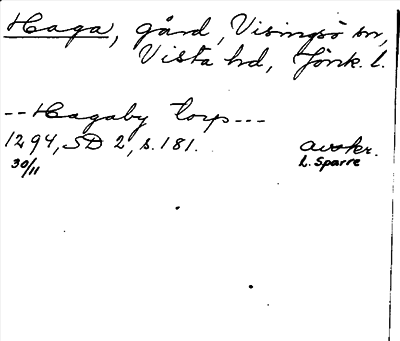 Haga, gård, Visingsö sn,
Vista hd, Jönk. l.
-- Hagaby torp ---
1294, SD 2, s. 181. avskr.
30/11 L. Sparre